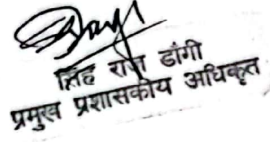 सिंह राज डाँगी
प्रमुख प्रशासकीय अधिकृत